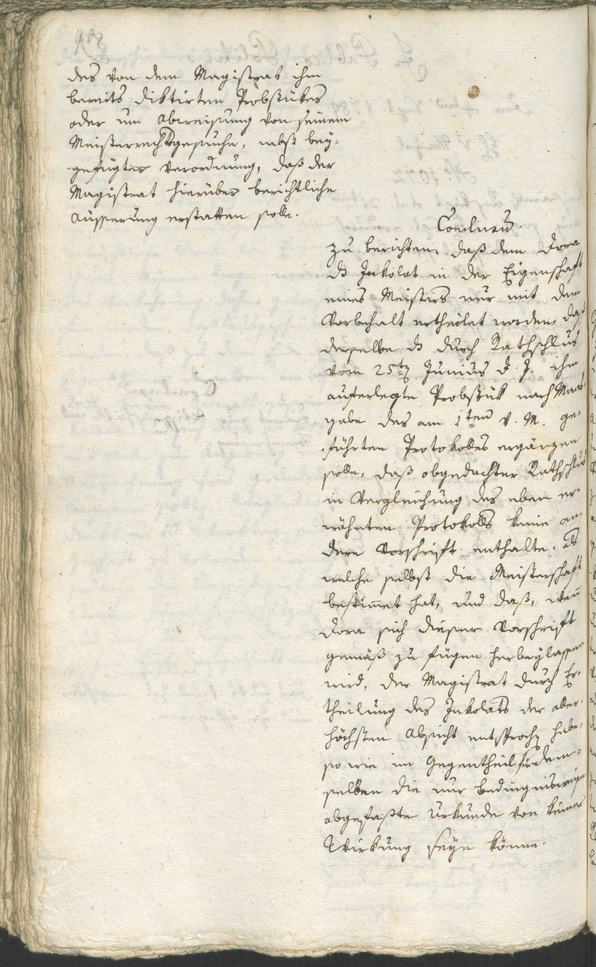 908
des von dem Magistrat ihm
bereits diktirten Probstükes
oder um Abweisung von seinem
Meisterrechtsgesuche, nebst bey-
gefügter Verordnung, daß der
Magistrat hierüber berichtliche
Äusserung erstatten solle.
Conclusum
Zu berichten, daß dem Dora
ds Inkolat in der Eigenschaft
eines Meisters nur mit dem
Vorbehalt ertheilet worden, daß
derselbe ds durch Rathschluß
vom 25ten Junius d. J. ihm
auferlegte Probstük nach Maas-
gabe des am 1ten v. M. ge-
führten Protokolles ergänzen
solle, daß obgedachter Rathschluß
in Vergleichung des eben er-
wähnten Protokolls keine an-
dere Vorschrift enthalte, als
welche selbst die Meisterschaft
bestimet hat, und daß, wenn
Dora sich dieser Vorschrift
gemäß zu fügen herbeylassen
wird, der Magistrat durch Er-
theilung des Inkolats der aller-
höchsten Absicht entsprochen habe,
so wie im Gegentheil für den-
selben die nur bedingnisweise
abgefaßte Urkunde von keiner
Wirkung seyn könne.